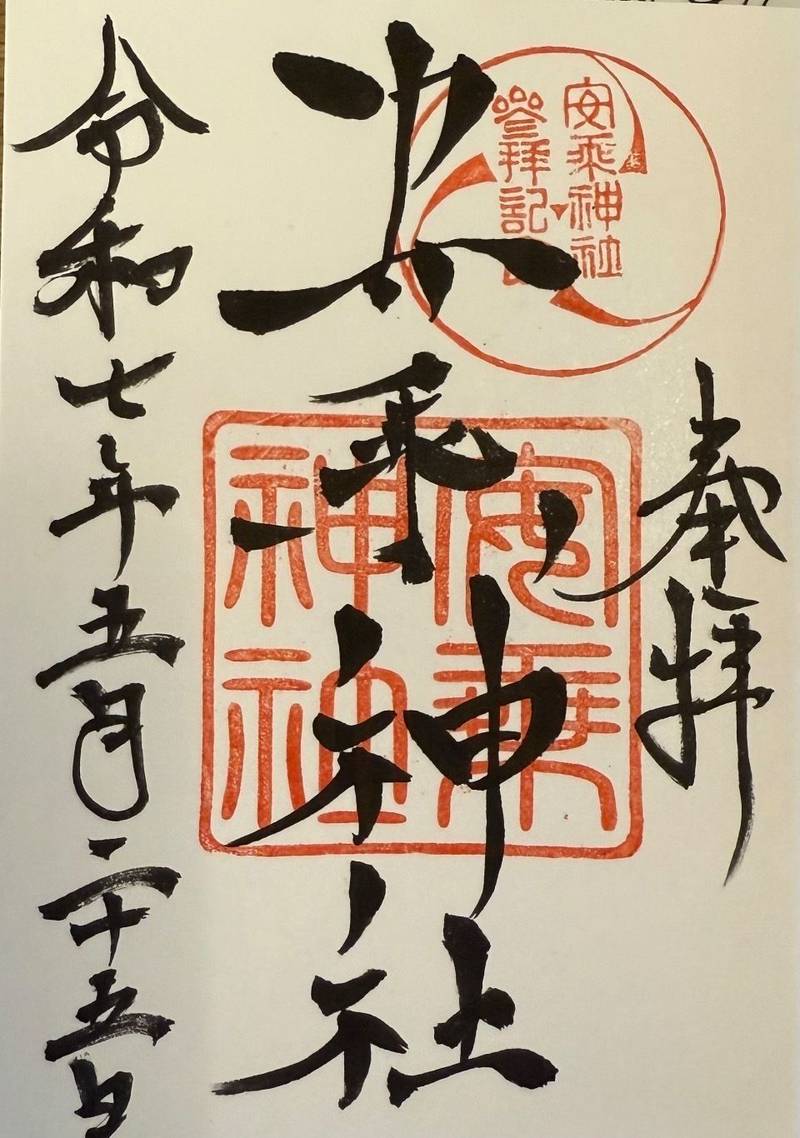 奉拝
安乗神社
参拝記
安乗神社
安乗
神社
令和七年五月二十五日